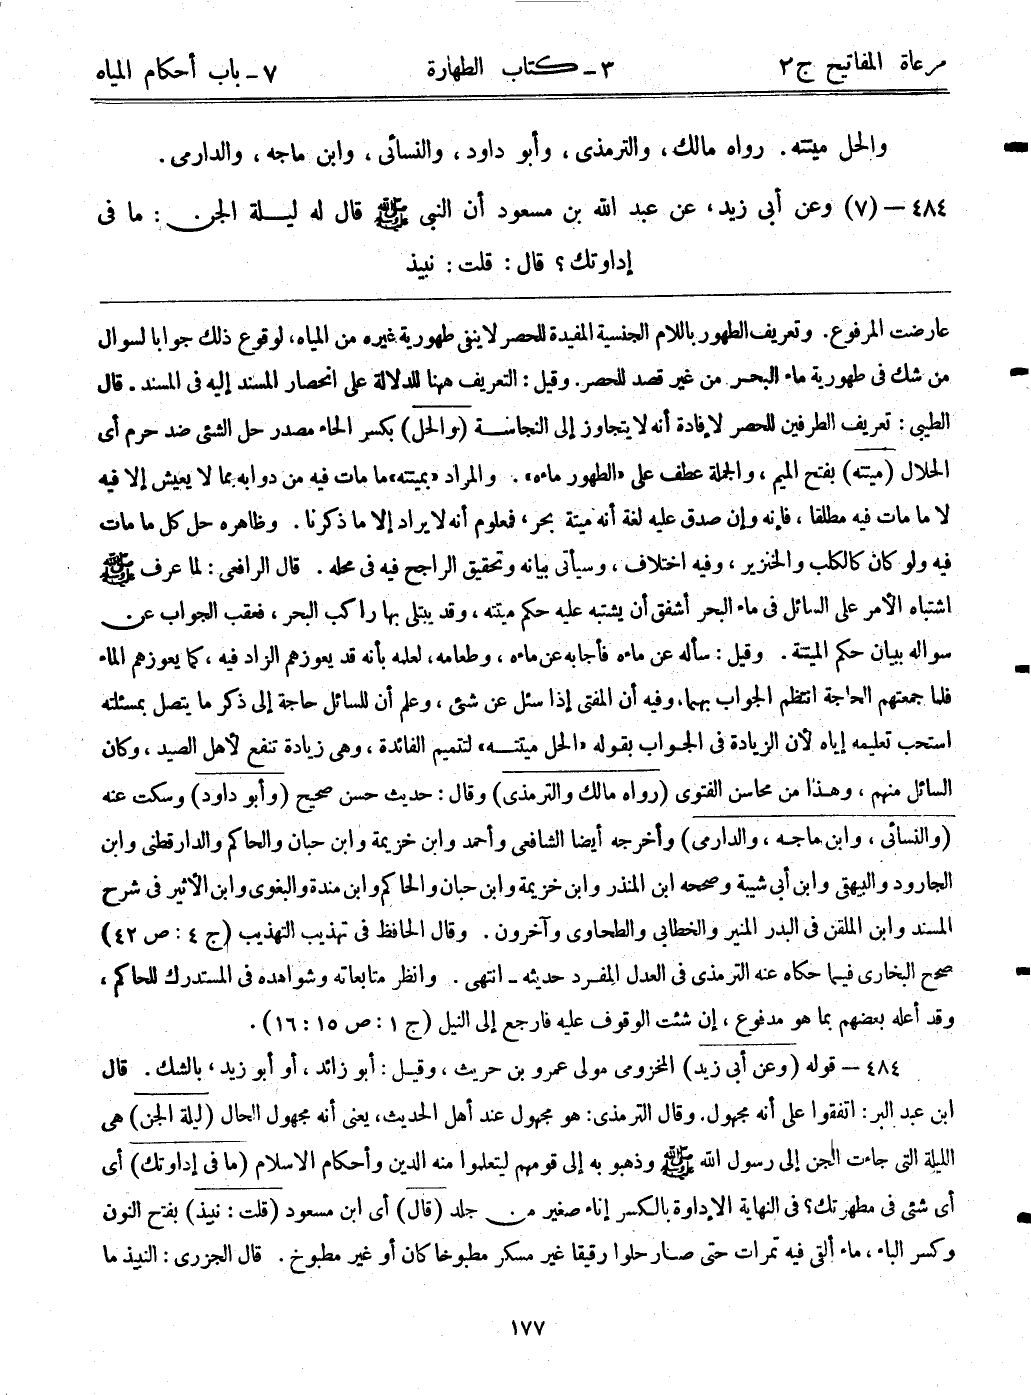 مرعاة المفاتيح ج٢ ٣ـ كتاب الطهارة ٧ـ باب أحكام المياه
والحل ميتته. رواه مالك، والترمذى، وأبو داود، والنسائى، وابن ماجه، والدارمى.
٤٨٤ – (٧) وعن أبى زيد، عن عبد الله بن مسعود أن النبى ﷺ قال له ليلة الجن: ما فى
إداوتك؟ قال: قلت: نبيذ
عارضت المرفوع. وتعريف الطهور باللام الجنسية المفيدة للحصر لا ينفى طهورية غيره من المياه، لوقوع ذلك جوابا لسوال
من شك فى طهورية ماء البحر من غير قصد للحصر. وقيل: التعريف ههنا للدلالة على انحصار المسند إليه فى المسند. قال
الطيبى: تعريف الطرفين للحصر لإفادة أنه لا يتجاوز إلى النجاسة (والحل) بكسر الحاء مصدر حل الشئى ضد حرم أى
الحلال (ميتته) بفتح الميم، والجملة عطف على «الطهور ماءه». والمراد «بميتته» ما مات فيه من دوابه مما لا يعيش إلا فيه
لا ما مات فيه مطلقا، فإنه وإن صدق عليه لغة أنه ميتة بحر، فمعلوم أنه لا يراد إلا ما ذكرنا. وظاهره حل كل ما مات
فيه ولو كان كالكلب والخنزير، وفيه اختلاف، وسيأتى بيانه وتحقيق الراجح فيه فى محله. قال الرافعى: لما عرف ﷺ
اشتباه الأمر على السائل فى ماء البحر أشفق أن يشتبه عليه حكم ميتته، وقد يبتلى بها راكب البحر، فعقب الجواب عن
سواله ببيان حكم الميتة. وقيل: سأله عن ماءه فأجابه عن ماءه، وطعامه، لعلمه بأنه قد يعوزهم الزاد فيه، كما يعوزهم الماء
فلما جمعتهم الحاجة انتظم الجواب بهما، وفيه أن المفتى إذا سئل عن شئى، وعلم أن للسائل حاجة إلى ذكر ما يتصل بمسئلته
استحب تعليمه إياه لأن الزيادة فى الجواب بقوله «الحل ميتته» لتتميم الفائدة، وهى زيادة تنفع لأهل الصيد، وكان
السائل منهم، وهذا من محاسن الفتوى (رواه مالك والترمذى) وقال: حديث حسن صحيح (وأبو داود) وسكت عنه
(والنسائى، وابن ماجه، والدارمى) وأخرجه أيضا الشافعى وأحمد وابن خزيمة وابن حبان والحاكم والدارقطنى وابن
الجارود والبيهقى وابن أبى شيبة وصححه ابن المنذر وابن خزيمة وابن حبان والحاكم وابن مندة والبغوى وابن الأثير فى شرح
المسند وابن الملقن فى البدر المنير والخطابى والطحاوى وآخرون. وقال الحافظ فى تهذيب التهذيب (ج ٤: ص ٤٢)
صحح البخارى فيما حكاه عنه الترمذى فى العدل المفرد حديثه ـ انتهى. وانظر متابعاته وشواهده فى المستدرك للحاكم،
وقد أعله بعضهم بما هو مدفوع، إن شئت الوقوف عليه فارجع إلى النيل (ج ١: ص ١٥: ١٦).
٤٨٤ – قوله (وعن أبى زيد) المخزومى مولى عمرو بن حريث، وقيل: أبو زائد، أو أبو زيد، بالشك. قال
ابن عبد البر: اتفقوا على أنه مجهول. وقال الترمذى: هو مجهول عند أهل الحديث، يعنى أنه مجهول الحال (ليلة الجن) هى
الليلة التى جاءت الجن إلى رسول الله ﷺ وذهبو به إلى قومهم ليتعلموا منه الدين وأحكام الاسلام (ما فى إداوتك) أى
أى شئى فى مطهرتك؟ فى النهاية الإداوة بالكسر إناء صغير من جلد (قال) أى ابن مسعود (قلت: نبيذ) بفتح النون
وكسر الباء، ماء ألقى فيه تمرات حتى صار حلوا رقيقا غير مسكر مطبوخا كان أو غير مطبوخ. قال الجزرى: النبيذ ما
١٧٧